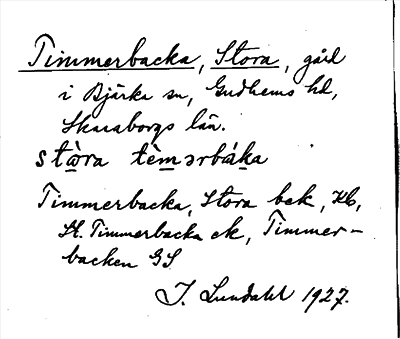 Timmerbacka, Stora, gård
i Bjärka sn, Gudhems hd,
Skaraborgs län.
stòra tèmərbáka
Timmerbacka, Stora bek, Kb,
St. Timmerbacka ek, Timmer-
backen GS
J. Lundahl 1927.